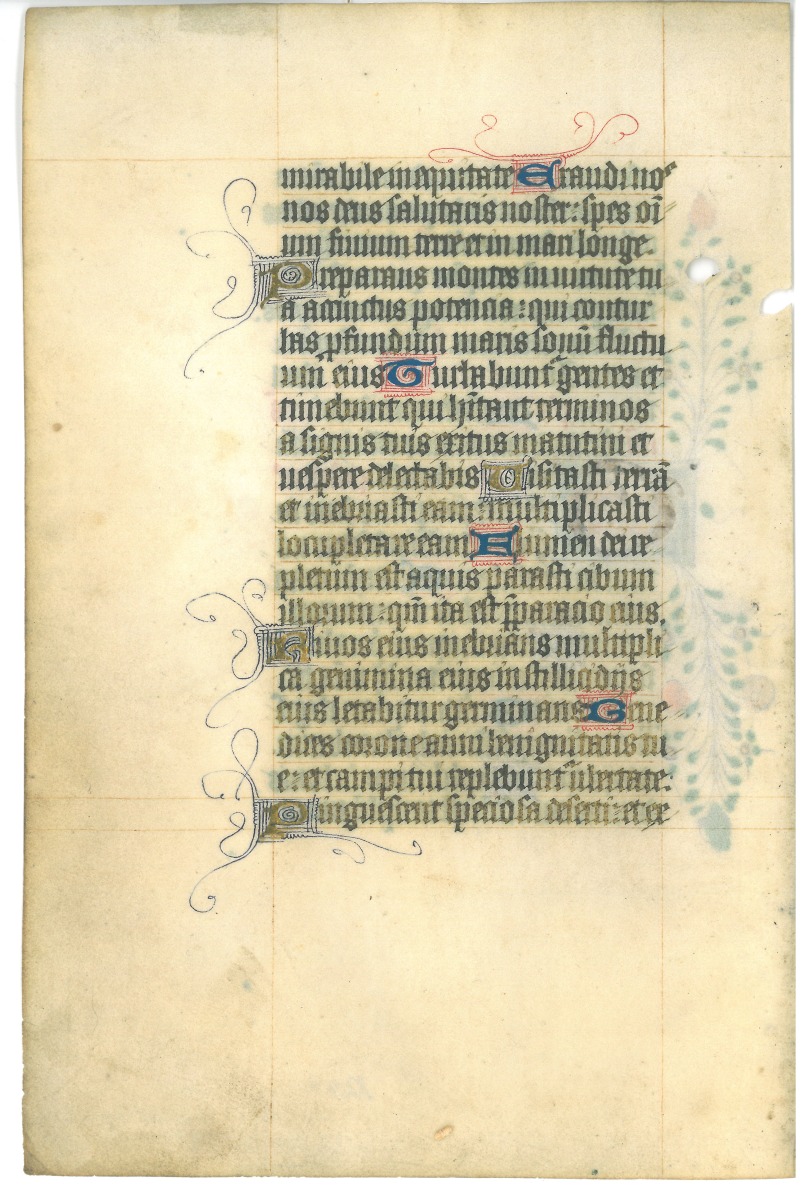 mirabile in equitate Exaudi no⁹
nos deus salutaris noster: spes oī
um finium terre et in mari longe.
Preparans montes in uirtute tu
a accinctus potencia: qui contur
bas pfundum maris sonū fluctu
um eius Turbabunt᷑ gentes et
timebunt qui hītant terminos
a signis tuis exitus matutini et
uespere delectabis Uisitasti terrā
et inebriasti eam: multiplicasti
locupletare eam Flumen dei re
pletum est aquis parasti cibum
illorum: qm̄ ita est p̄paracio eius.
Riuos eius inebrians multipli
ca genimina eius in stillicidijs
eius letabitur germinans Bene
dices corone anni benignitatis tu
e: et campi tui replebunt᷑ ubertate:
Pinguescent speciosa deserti: et ex